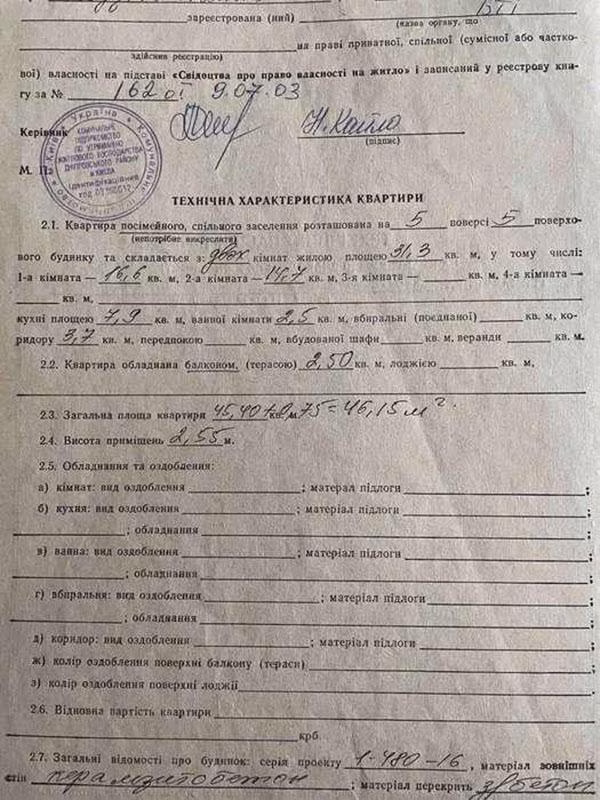 БТІ
зареєстрована (ний)
(назва органу, що
на праві приватної, спільної (сумісної або частко-
здійснив реєстрацію)
вої) власності на підставі «Свідоцтва про право власності на житло» і записаний у реєстрову кни-
гу за № 162 от 9.07.03
Керівник
(підпис)
М. П.
Україна
Київ
КОМУНАЛЬНЕ
ПІДПРИЄМСТВО
ПО УТРИМАННЮ
ЖИТЛОВОГО ГОСПОДАРСТВА
ДНІПРОВСЬКОГО РАЙОНУ
м.КИЄВА
Ідентифікаційний
код
ТЕХНІЧНА ХАРАКТЕРИСТИКА КВАРТИРИ
2.1. Квартира посімейного, спільного заселення розташована на 5 поверсі 5 поверхо-
(непотрібне викреслити)
вого будинку та складається з: двох кімнат жилою площею 31,3 кв. м, у тому числі:
1-а кімната — 16,6 кв. м, 2-а кімната — 14,7 кв. м, 3-я кімната — кв. м, 4-а кімната —
кв. м,
кухні площею 7,9 кв. м, ванної кімнати 2,5 кв. м, вбиральні (поєднаної) кв. м, ко-
ридору 3,7 кв. м, передпокою кв. м, вбудованої шафи кв. м, веранди кв. м.
2.2. Квартира обладнана балконом, (терасою) 2,50 кв. м, лоджією кв. м,
2.3. Загальна площа квартири 45,40+0,75=46,15 м² кв. м.
2.4. Висота приміщень 2,55 м.
2.5. Обладнання та оздоблення:
а) кімнат: вид оздоблення ; матерал підлоги ;
б) кухня: вид оздоблення ; матеріал підлоги
; обладнання ;
в) ванна: вид оздоблення ; матеріал підлоги
; обладнання ;
г) вбиральня: вид оздоблення ; матеріал підлоги
; обладнання ;
д) коридор: вид оздоблення ; матеріал підлоги ;
ж) колір оздоблення поверхні балкону (тераси) ;
з) колір оздоблення поверхні лоджії
2.6. Відновна вартість квартири
крб.
2.7. Загальні відомості про будинок: серія проекту 1-480-16, матеріал зовнішніх
стін керамзитобетон ; матеріал перекрить з/бетон